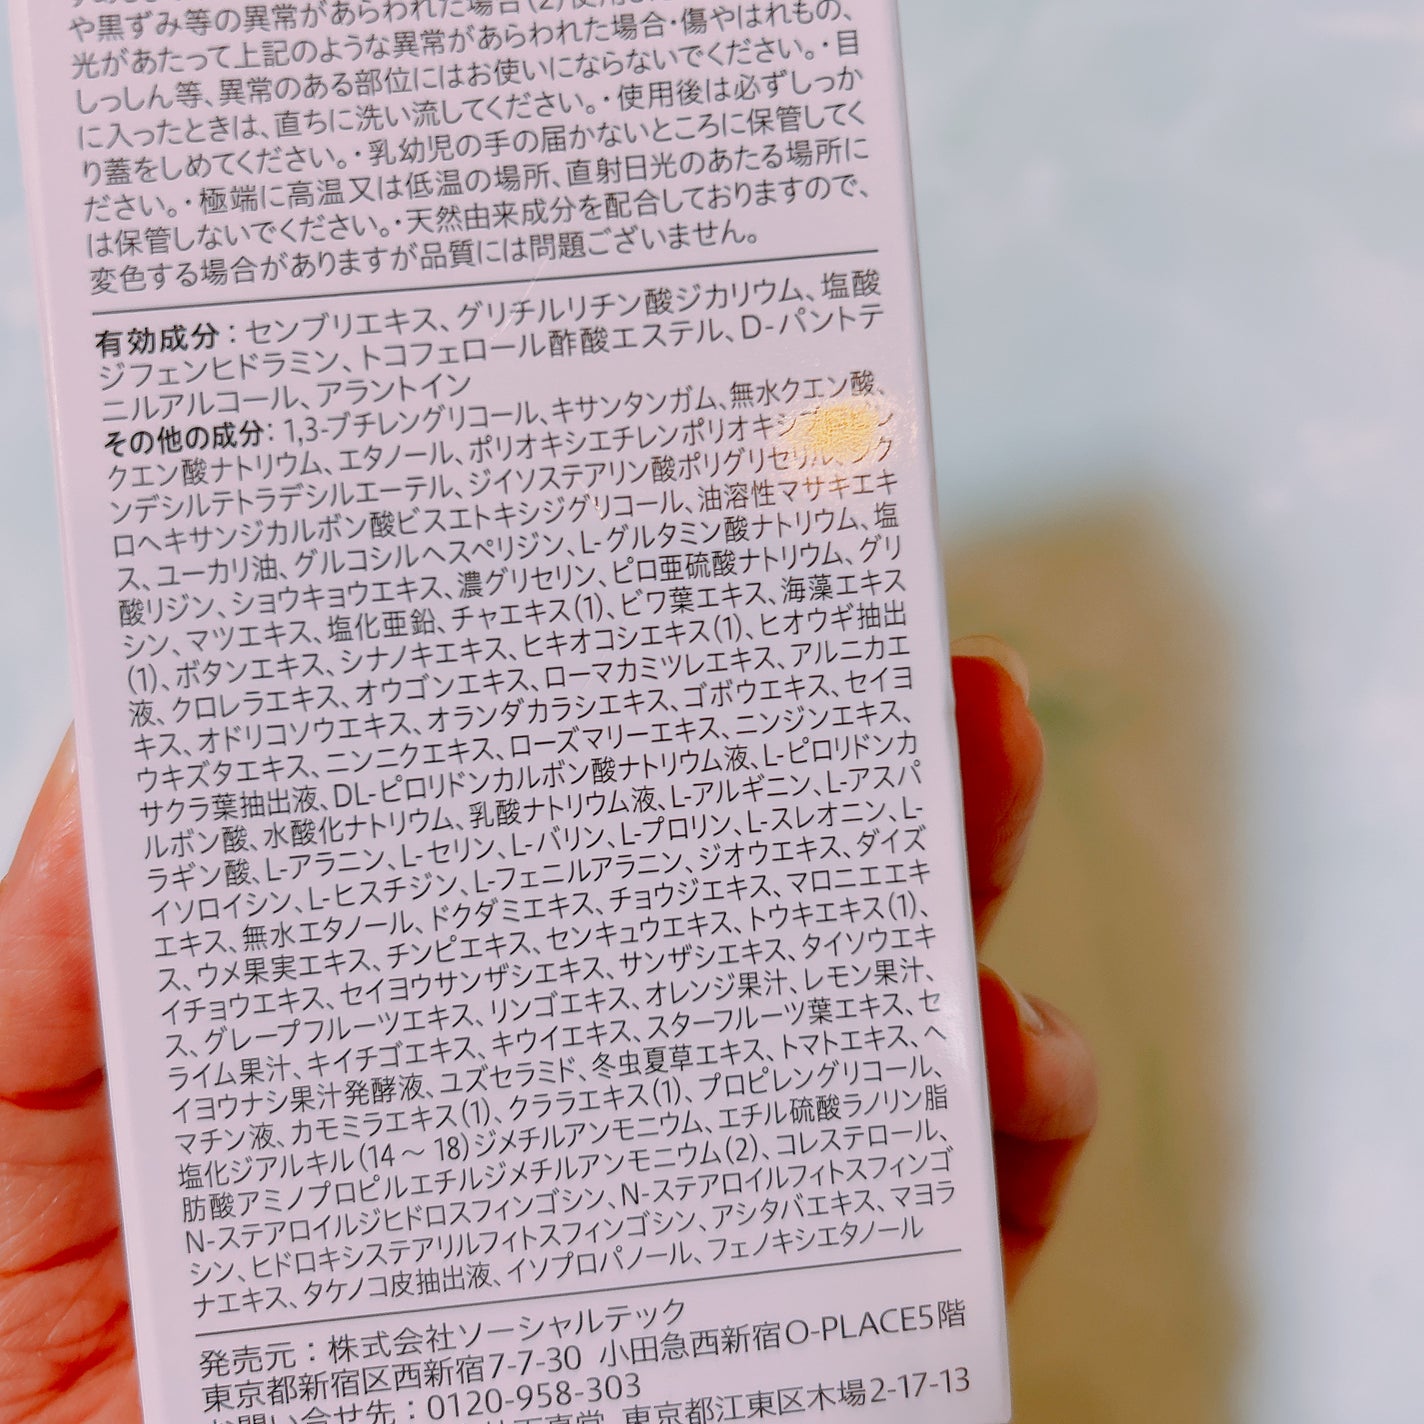 や黒ずみ等の異常があらわれた場合(2)使用し
光があたって上記のような異常があらわれた場合・傷やはれもの、
しっしん等、異常のある部位にはお使いにならないでください。・目
に入ったときは、直ちに洗い流してください。・使用後は必ずしっか
り蓋をしめてください。・乳幼児の手の届かないところに保管してく
ださい。・極端に高温又は低温の場所、直射日光のあたる場所に
は保管しないでください。・天然由来成分を配合しておりますので、
変色する場合がありますが品質には問題ございません。
有効成分：センブリエキス、グリチルリチン酸ジカリウム、塩酸
ジフェンヒドラミン、トコフェロール酢酸エステル、D-パントテ
ニルアルコール、アラントイン
その他の成分：1,3-ブチレングリコール、キサンタンガム、無水クエン酸、
クエン酸ナトリウム、エタノール、ポリオキシエチレンポリオキシ
ンデシルテトラデシルエーテル、ジイソステアリン酸ポリグリセリル、シク
ロヘキサンジカルボン酸ビスエトキシジグリコール、油溶性マサキエキ
ス、ユーカリ油、グルコシルヘスペリジン、L-グルタミン酸ナトリウム、塩
酸リジン、ショウキョウエキス、濃グリセリン、ピロ亜硫酸ナトリウム、グリ
シン、マツエキス、塩化亜鉛、チャエキス(1)、ビワ葉エキス、海藻エキス
(1)、ボタンエキス、シナノキエキス、ヒキオコシエキス(1)、ヒオウギ抽出
液、クロレラエキス、オウゴンエキス、ローマカミツレエキス、アルニカエ
キス、オドリコソウエキス、オランダカラシエキス、ゴボウエキス、セイヨ
ウキズタエキス、ニンニクエキス、ローズマリーエキス、ニンジンエキス、
サクラ葉抽出液、DL-ピロリドンカルボン酸ナトリウム液、L-ピロリドンカ
ルボン酸、水酸化ナトリウム、乳酸ナトリウム液、L-アルギニン、L-アスパ
ラギン酸、L-アラニン、L-セリン、L-バリン、L-プロリン、L-スレオニン、L-
イソロイシン、L-ヒスチジン、L-フェニルアラニン、ジオウエキス、ダイズ
エキス、無水エタノール、ドクダミエキス、チョウジエキス、マロニエエキ
ス、ウメ果実エキス、チンピエキス、センキュウエキス、トウキエキス(1)、
イチョウエキス、セイヨウサンザシエキス、サンザシエキス、タイソウエキ
ス、グレープフルーツエキス、リンゴエキス、オレンジ果汁、レモン果汁、
ライム果汁、キイチゴエキス、キウイエキス、スターフルーツ葉エキス、セ
イヨウナシ果汁発酵液、ユズセラミド、冬虫夏草エキス、トマトエキス、ヘ
マチン液、カモミラエキス(1)、クララエキス(1)、プロピレングリコール、
塩化ジアルキル(14～18)ジメチルアンモニウム、エチル硫酸ラノリン脂
肪酸アミノプロピルエチルジメチルアンモニウム(2)、コレステロール、
N-ステアロイルジヒドロスフィンゴシン、N-ステアロイルフィトスフィンゴ
シン、ヒドロキシステアリルフィトスフィンゴシン、アシタバエキス、マヨラ
ナエキス、タケノコ皮抽出液、イソプロパノール、フェノキシエタノール
発売元：株式会社ソーシャルテック
東京都新宿区西新宿7-7-30 小田急西新宿O-PLACE5階
お問い合せ先：0120-958-303
東京都江東区木場2-17-13